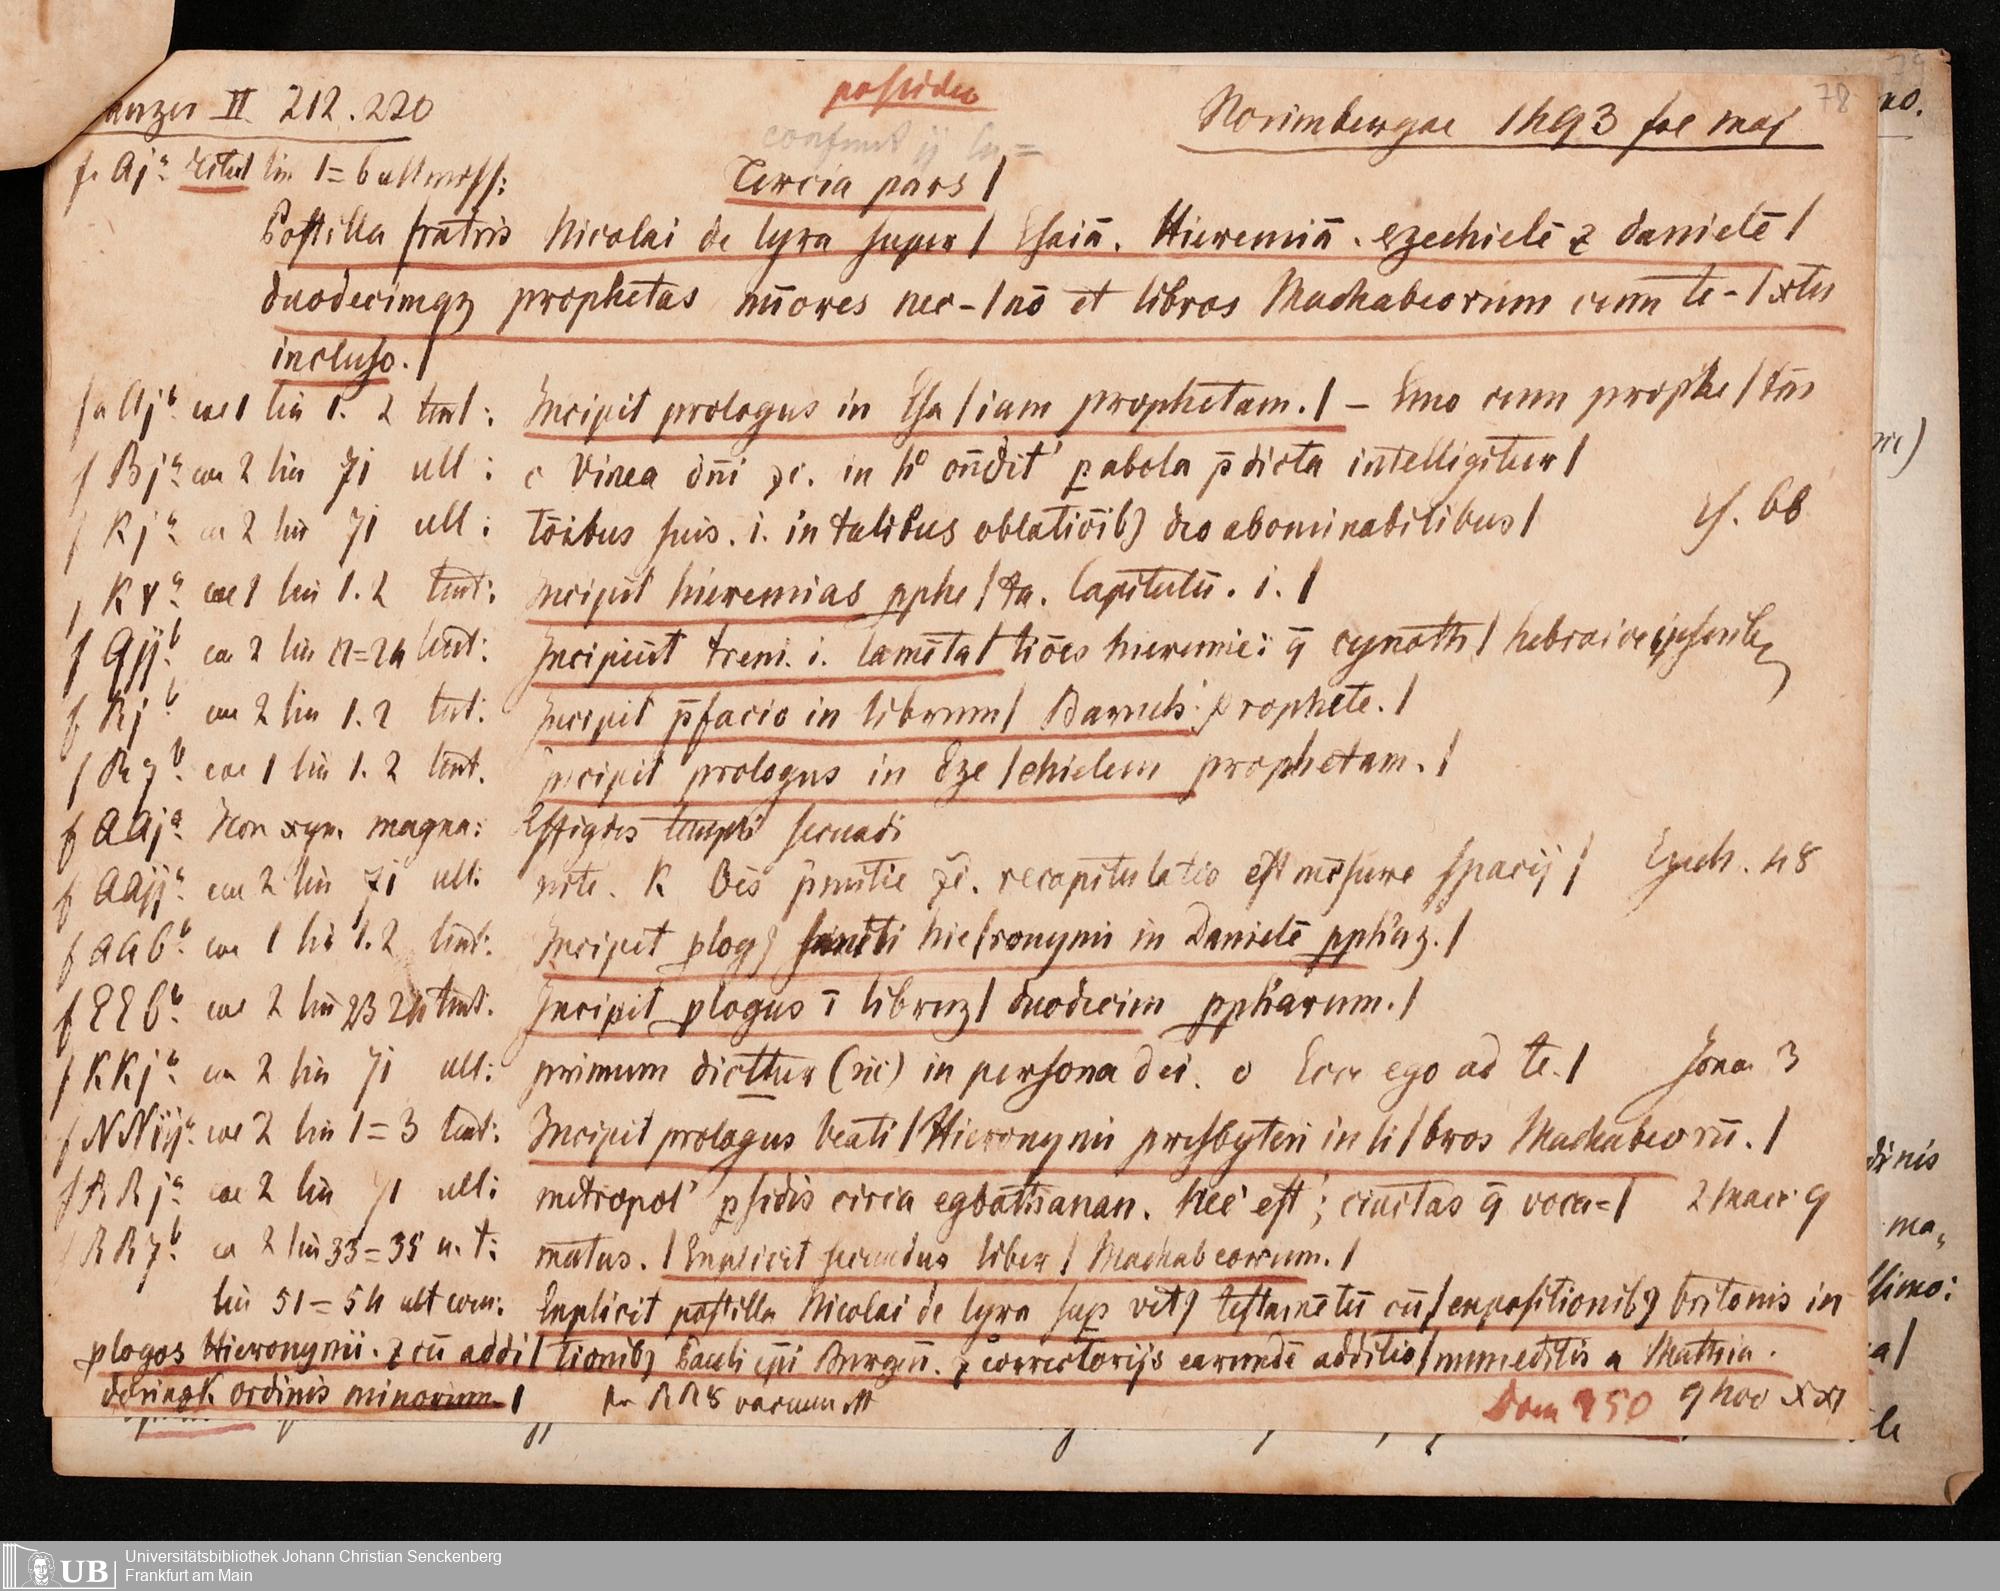 anzer II 212.220
possideo
Norimbergae 1493 fol maj
78
f. Aj a titul lin 1=6 ult miss:
Tercia pars |
Postilla fratris Nicolai de lyra super | Esaiā. Hieremiā. ezechielē z danielē |
duodecimqz prophetas mīores nec-|nō et libros Machabeorum cum te-|xtu
incluso. |
f a Aj b. col 1 lin 1. 2 tmt: Incipit prologus in Esa|iam prophetam. | – Emo cum prophe|tās
f Bj a. col 2 lin 71 ult: c Vinea dn̄i zc. in h° on̄dit' pabola p̄dicta intelligitur |
f Kj a. co 2 lin 71 ult: tōibus suis. i. in talibus oblatiōibȝ deo abominabilibus | Es. 66
f Kv a. col 1 lin 1. 2 tmt: Incipit hieremias pphe|ta. Capitulū. i. |
f Qjj b. co 2 lin 21=24 tmt: Incipiūt treni. i. lamēta|tiōes hieremie: q̄ cynoth | hebraice
f Rj b. col 2 lin 1. 2 tmt: Incipit p̄facio in librum | Baruch prophete. |
f R7 b. col 1 lin 1. 2 tmt. Incipit prologus in Eze|chielem prophetam. |
f AAj a. Icon xyn. magna: Effigies templi secundi
f AAjj a. col 2 lin 71 ult: nite. K Bēs pmitie zc̄. recapitulatio est mēsure spacij | Ezech. 48
f AA6 b. col 1 lin 1.2 tmt: Incipit plogȝ sancti hie|ronymi in Danielē pphāz. |
f EE6 b. col 2 lin 23 24 tmt: Incipit plogus ī libruz | duodecim ppharum. |
f KKj a. co 2 lin 71 ult: primum dicttur (sic) in persona dei. o Ecce ego ad te. | Jona 3
f NNiij a. col 2 lin 1=3 tmt: Incipit prologus beati | Hieronymi presbyteri in li|bros Machabeorū. |
f RRj a. col 2 lin 71 ult: metropol' psidis circa egbathanan. hec est; ciuitas q̄ voca=| 2 Macc. 9
f RR7 b. co 2 lin 33=35 u. t: matus. | Explicit secundus liber | Machabeorum. |
lin 51=54 ult com: Explicit postilla Nicolai de lyra sup vetȝ testamētū cū | expositionibȝ britonis in
plogos Hieronymi. z cū addi|tionibȝ Pauli ep̄i Burgeñ. z correctorijs earundē additio|num editis a Mathia.
doringk ordinis minorum. | fo RR8 vacuum est
Dom 250
dinis